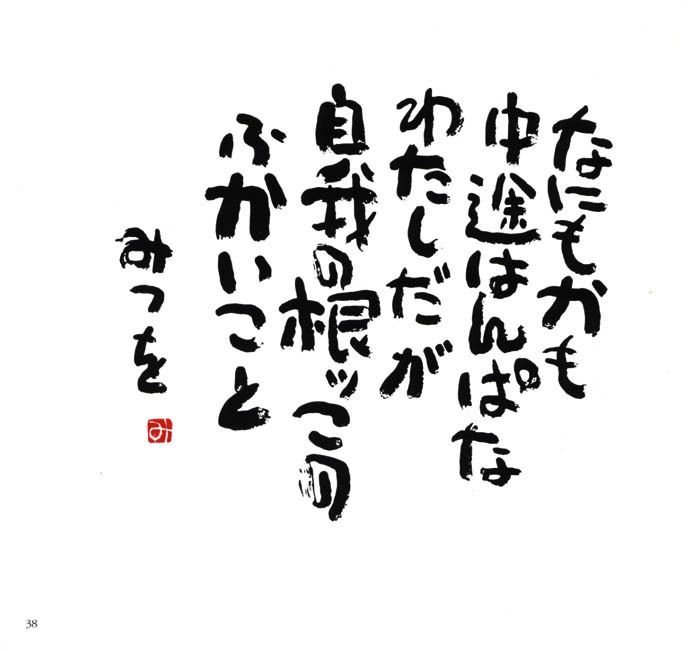 なにもかも
中途はんぱな
わたしだが
自我の根ッこの
ふかいこと
みつを
み
38